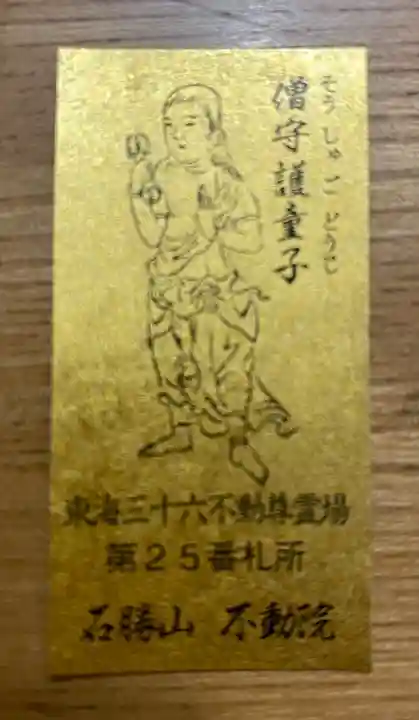 僧守護童子
そうしゅごどうじ
東海三十六不動尊霊場
第25番札所
石勝山 不動院